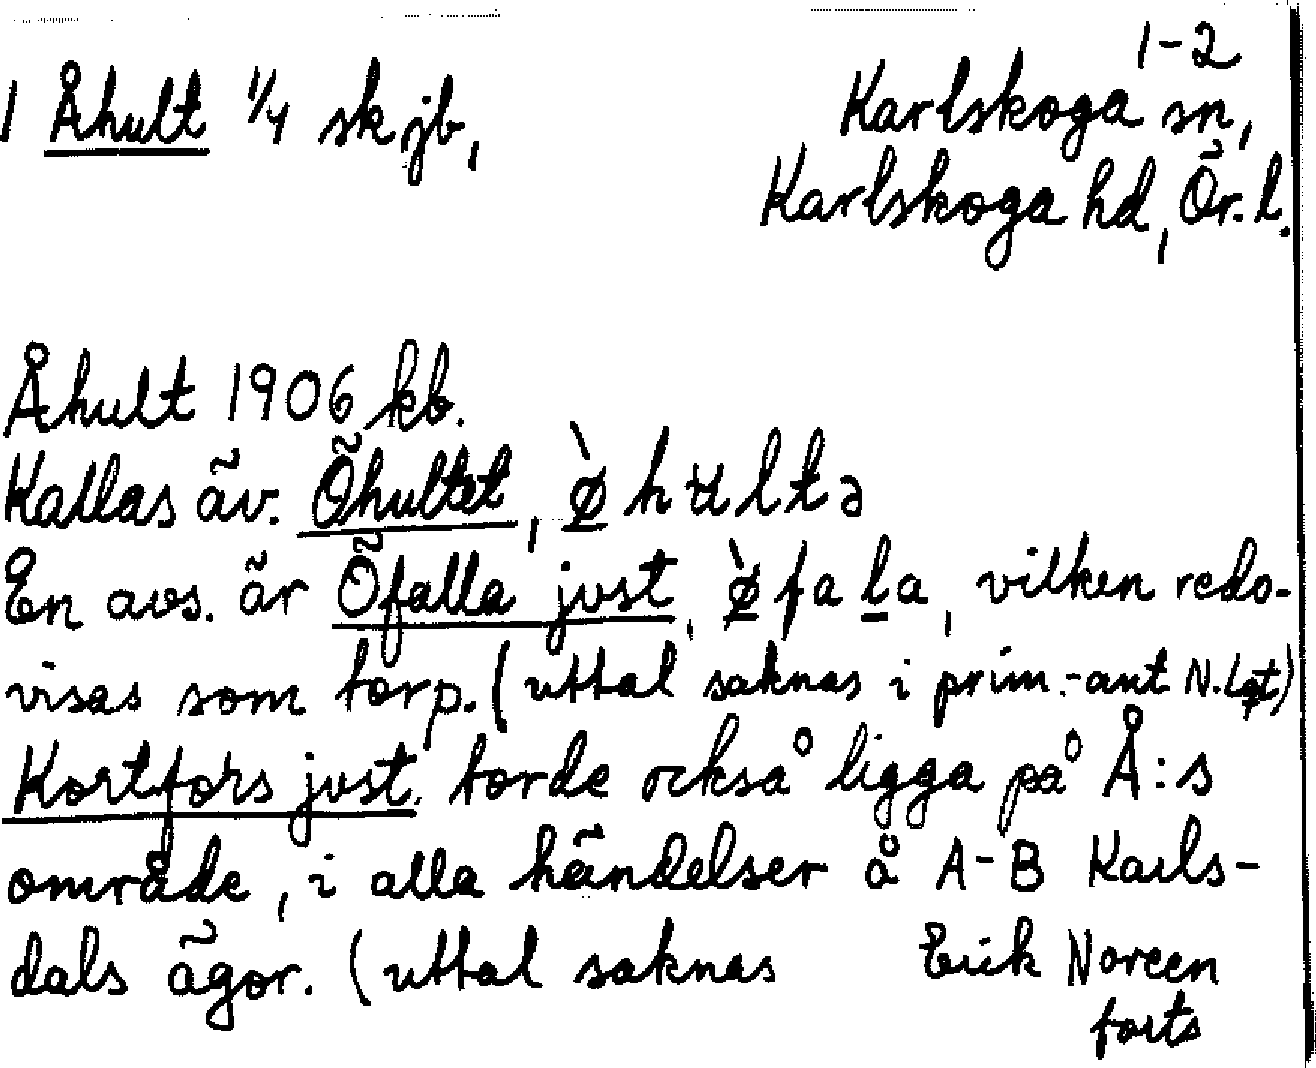 1-2
1 Åhult 1/4 skjb, Karlskoga sn,
Karlskoga hd, Ör. l.
Åhult 1906 kb.
Kallas äv. Öhultet, ø̀hʉltə
En avs. är Öfalla just, ø̀faḷa, vilken redo-
visas som torp. (uttal saknas i prim.-ant N. Lgt)
Kortfors just. torde också ligga på Å:s
område, i alla händelser å A-B Karls-
dals ägor. (uttal saknas Erik Noreen
forts